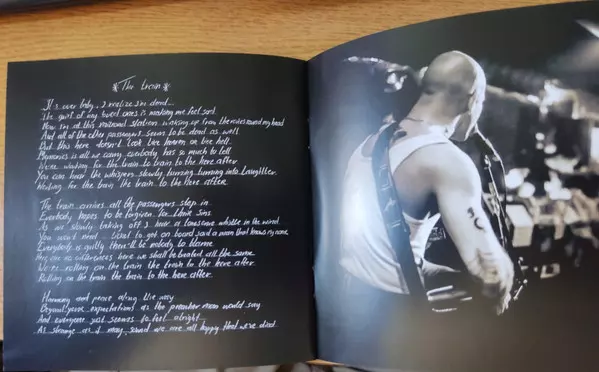 *The train*
It's over baby, I realize I'm dead
The guilt of my loved ones is making me feel sad
Now I'm at this railroad station waking up from the voices round my head
And all of the other passengers seem to be dead as well
But this here doesn't look like heaven or like hell
Memories is all we carry everybody has so much to tell
We're waiting for the train to train to the here after
You can hear the whispers slowly turning turning into laughter
Waiting for the train the train to the here after
The train arrives all the passengers step in
Everybody hopes to be forgiven for their sins
As we slowly taking off I hear a lonesome whistle in the wind
You won't need a ticket to get on board said a man that knows my name
Everybody is guilty there'll be nobody to blame
are no differences here we shall be treated all the same
We're rolling on the train the train to the here after
Rolling on the train the train to the here after
Harmony and peace along the way
Beyond your expectations as the preacher man would say
And everyone just seems to feel alright
As strange as it may sound we are all happy that we've died